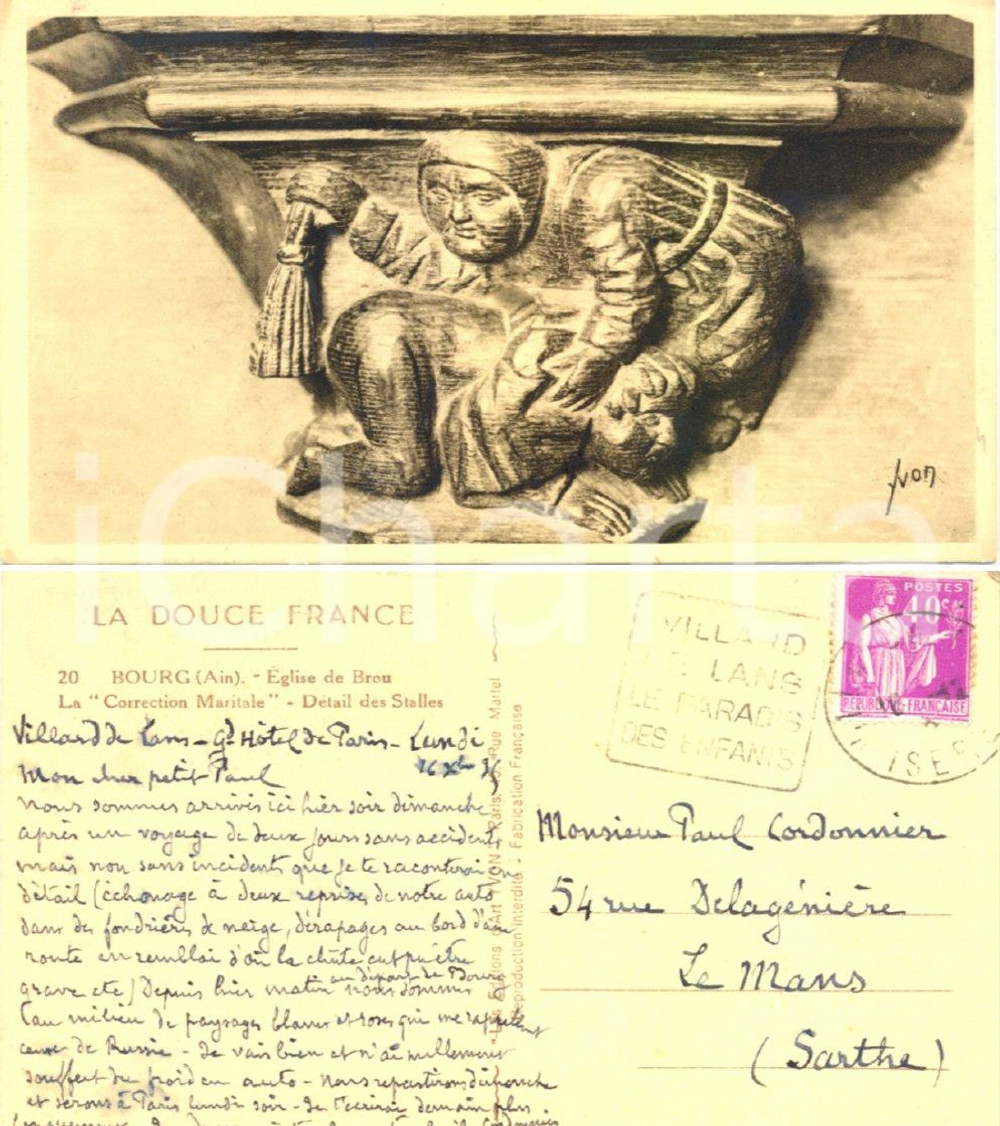 Yvon
iCharta
LA DOUCE FRANCE
20 BOURG (Ain). - Église de Brou
La "Correction Maritale" - Détail des Stalles
Villard de Lans - Gd Hôtel de Paris - Lundi
16 Xbre 35
Mon cher petit Paul
nous sommes arrivés ici hier soir dimanche
après un voyage de deux jours sans accident
mais non sans incidents que je te raconterai en
détail (échouage à deux reprises de notre auto
dans des fondrières de neige, dérapages au bord d'une
route en remblai d'où la chûte eut pu être
grave etc) Depuis hier matin au départ de Bourg nous sommes
au milieu de paysages blancs et roses qui me rappellent
ceux de Russie - Je vais bien et n'ai nullement
souffert du froid en auto - nous repartirons dimanche
et serons à Paris lundi soir - Je t'écrirai demain plus
Les Éditions d'Art YVON Paris, Rue Martel
Reproduction Interdite - Fabrication Française
VILLARD
DE LANS
LE PARADIS
DES ENFANTS
POSTES
40c
REPUBLIQUE FRANÇAISE
ISERE
Monsieur Paul Cordonnier
54 rue Delagénière
Le Mans
(Sarthe)